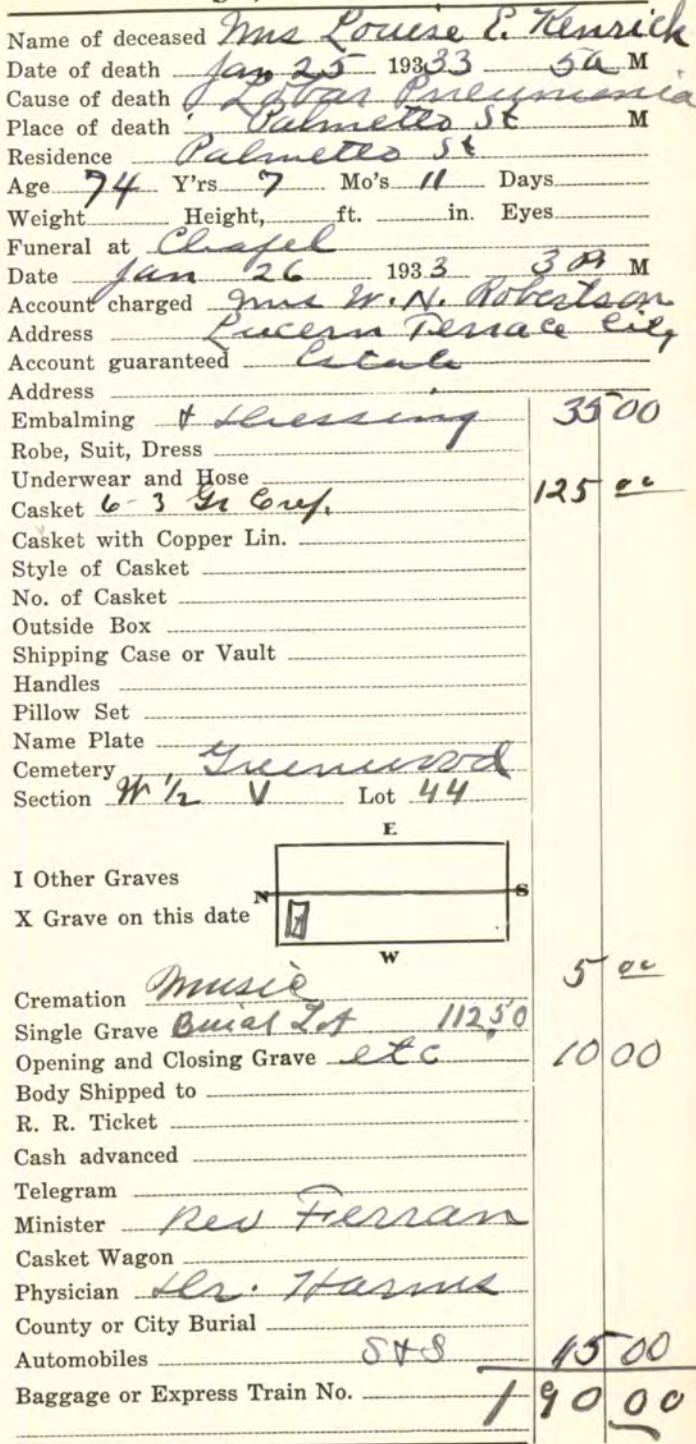 Name of deceased Mrs Louise E. Kenrick
Date of death Jan 25 19333 5 a M
Cause of death Lobar Pneumonia
Place of death Palmetto St M
Residence Palmetto St
Age 74 Y'rs 7 Mo's 11 Days
Weight Height, ft. in. Eyes
Funeral at Chapel
Date Jan 26 1933 3 P M
Account charged Mrs W. N. Robertson
Address Lucern Terrace City
Account guaranteed Estate
Address
Embalming & Dressing 35 00
Robe, Suit, Dress
Underwear and Hose
Casket 6-3 Gr Crep. 125 00
Casket with Copper Lin.
Style of Casket
No. of Casket
Outside Box
Shipping Case or Vault
Handles
Pillow Set
Name Plate
Cemetery Greenwood
Section W 1/2 V Lot 44
E
I Other Graves
N S
X Grave on this date X
W
Cremation Music 5 00
Single Grave Burial Lot 112.50
Opening and Closing Grave etc 10 00
Body Shipped to
R. R. Ticket
Cash advanced
Telegram
Minister Rev Ferran
Casket Wagon
Physician Dr. Harms
County or City Burial
Automobiles S & S 15 00
Baggage or Express Train No. 190 00